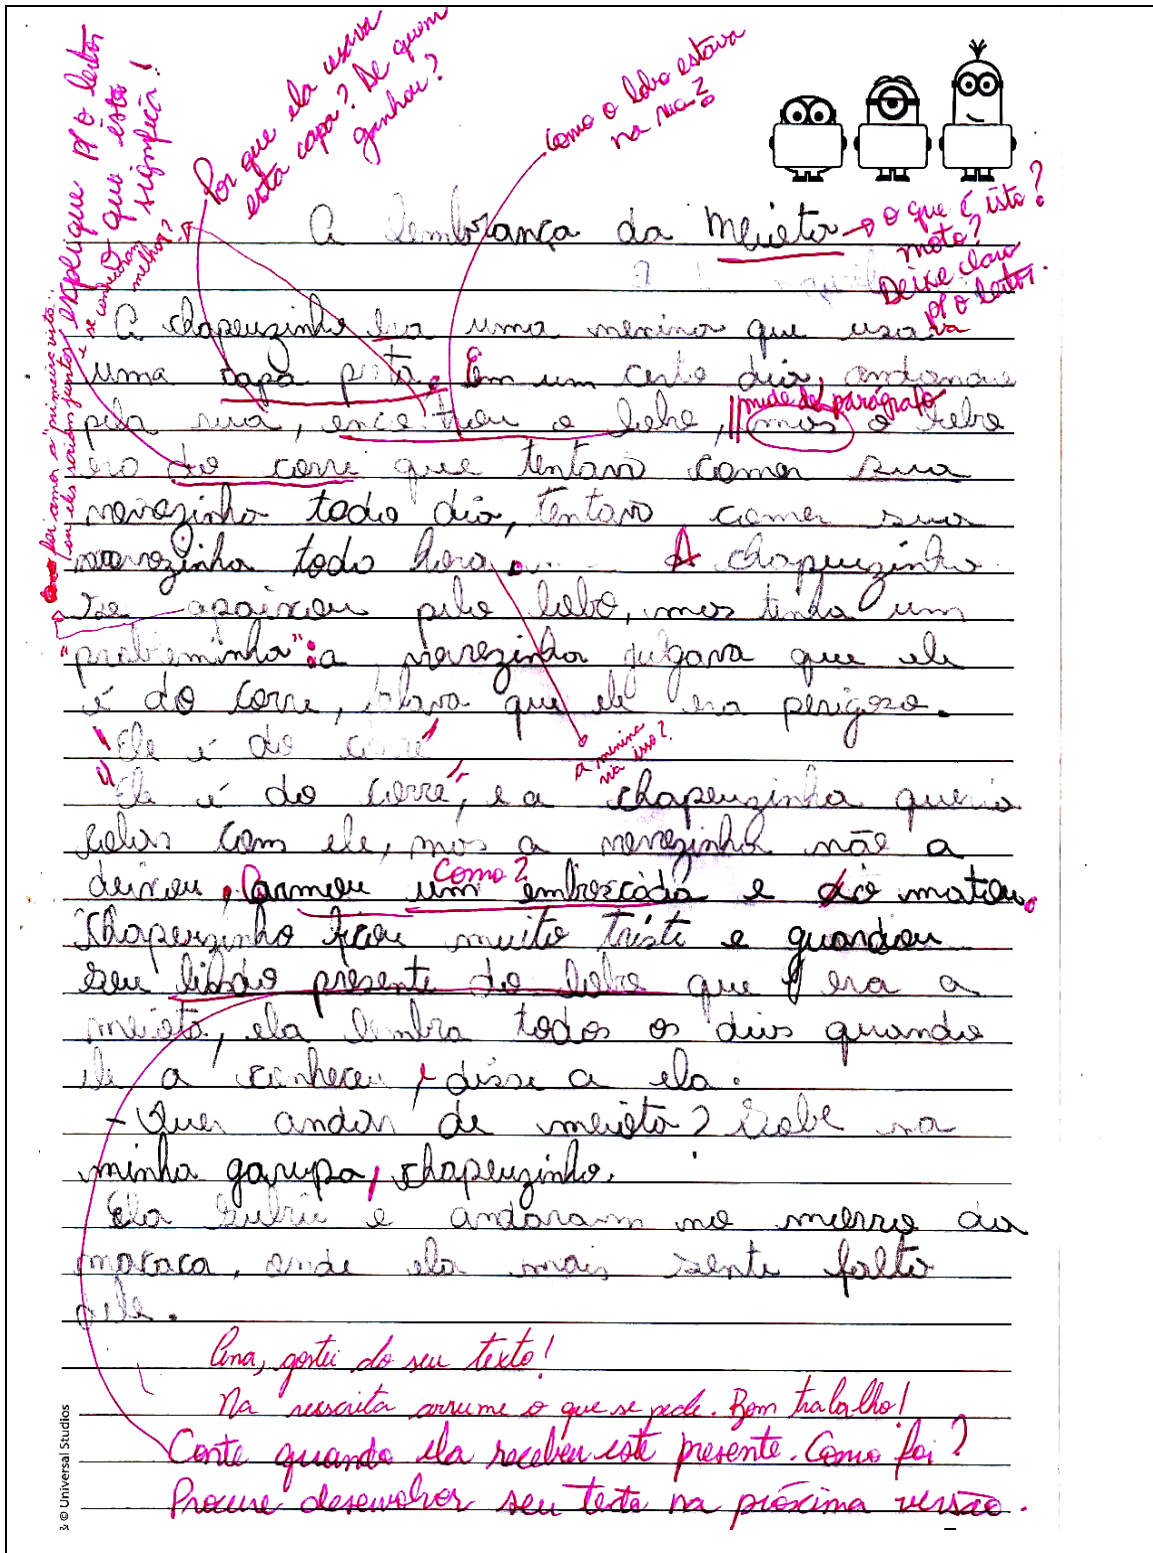 explique p/ o leitor
o que isto
significa!
Por que ela usava
esta capa? De quem
ganhou?
Como o lobo estava
na rua?
A lembrança da Meiota
→ o que é isto?
moto?
Deixe claro
p/ o leitor.
A chapeuzinho era uma menina que usava
uma capa preta. Em um certo dia, andando
pela rua, encontrou o lobo, || mas o lobo
mude de parágrafo
era do corre que tentava comer sua
vovozinha todo dia, tentava comer sua
vovozinha toda hora. A chapeuzinho
se apaixonou pelo lobo, mas tinha um
foi amor à primeira vista...
ou eles saíram juntos e se conheceram melhor?
"probleminha": a vovozinha julgava que ele
é do corre, falava que ele era perigoso.
"Ele é do corre"
a menina
via isso?
"Ele é do corre", e a chapeuzinha queria
ficar com ele, mas a vovozinha não a
deixou, armou um emboscada e o matou.
Como?
Chapeuzinho ficou muito triste e guardou
seu lindo presente do lobo que era a
meiota, ela lembra todos os dias quando
ele a conheceu, e disse a ela.
- Quer andar de meiota? Sobe na
minha garupa, chapeuzinho.
Ela subiu e andaram no morro da
macaca, onde ela mais sente falta
dele.
Ana, gostei do seu texto!
Na reescrita arrume o que se pede. Bom trabalho!
Conte quando ela recebeu este presente. Como foi?
Procure desenvolver seu texto na próxima versão.
& © Universal Studios